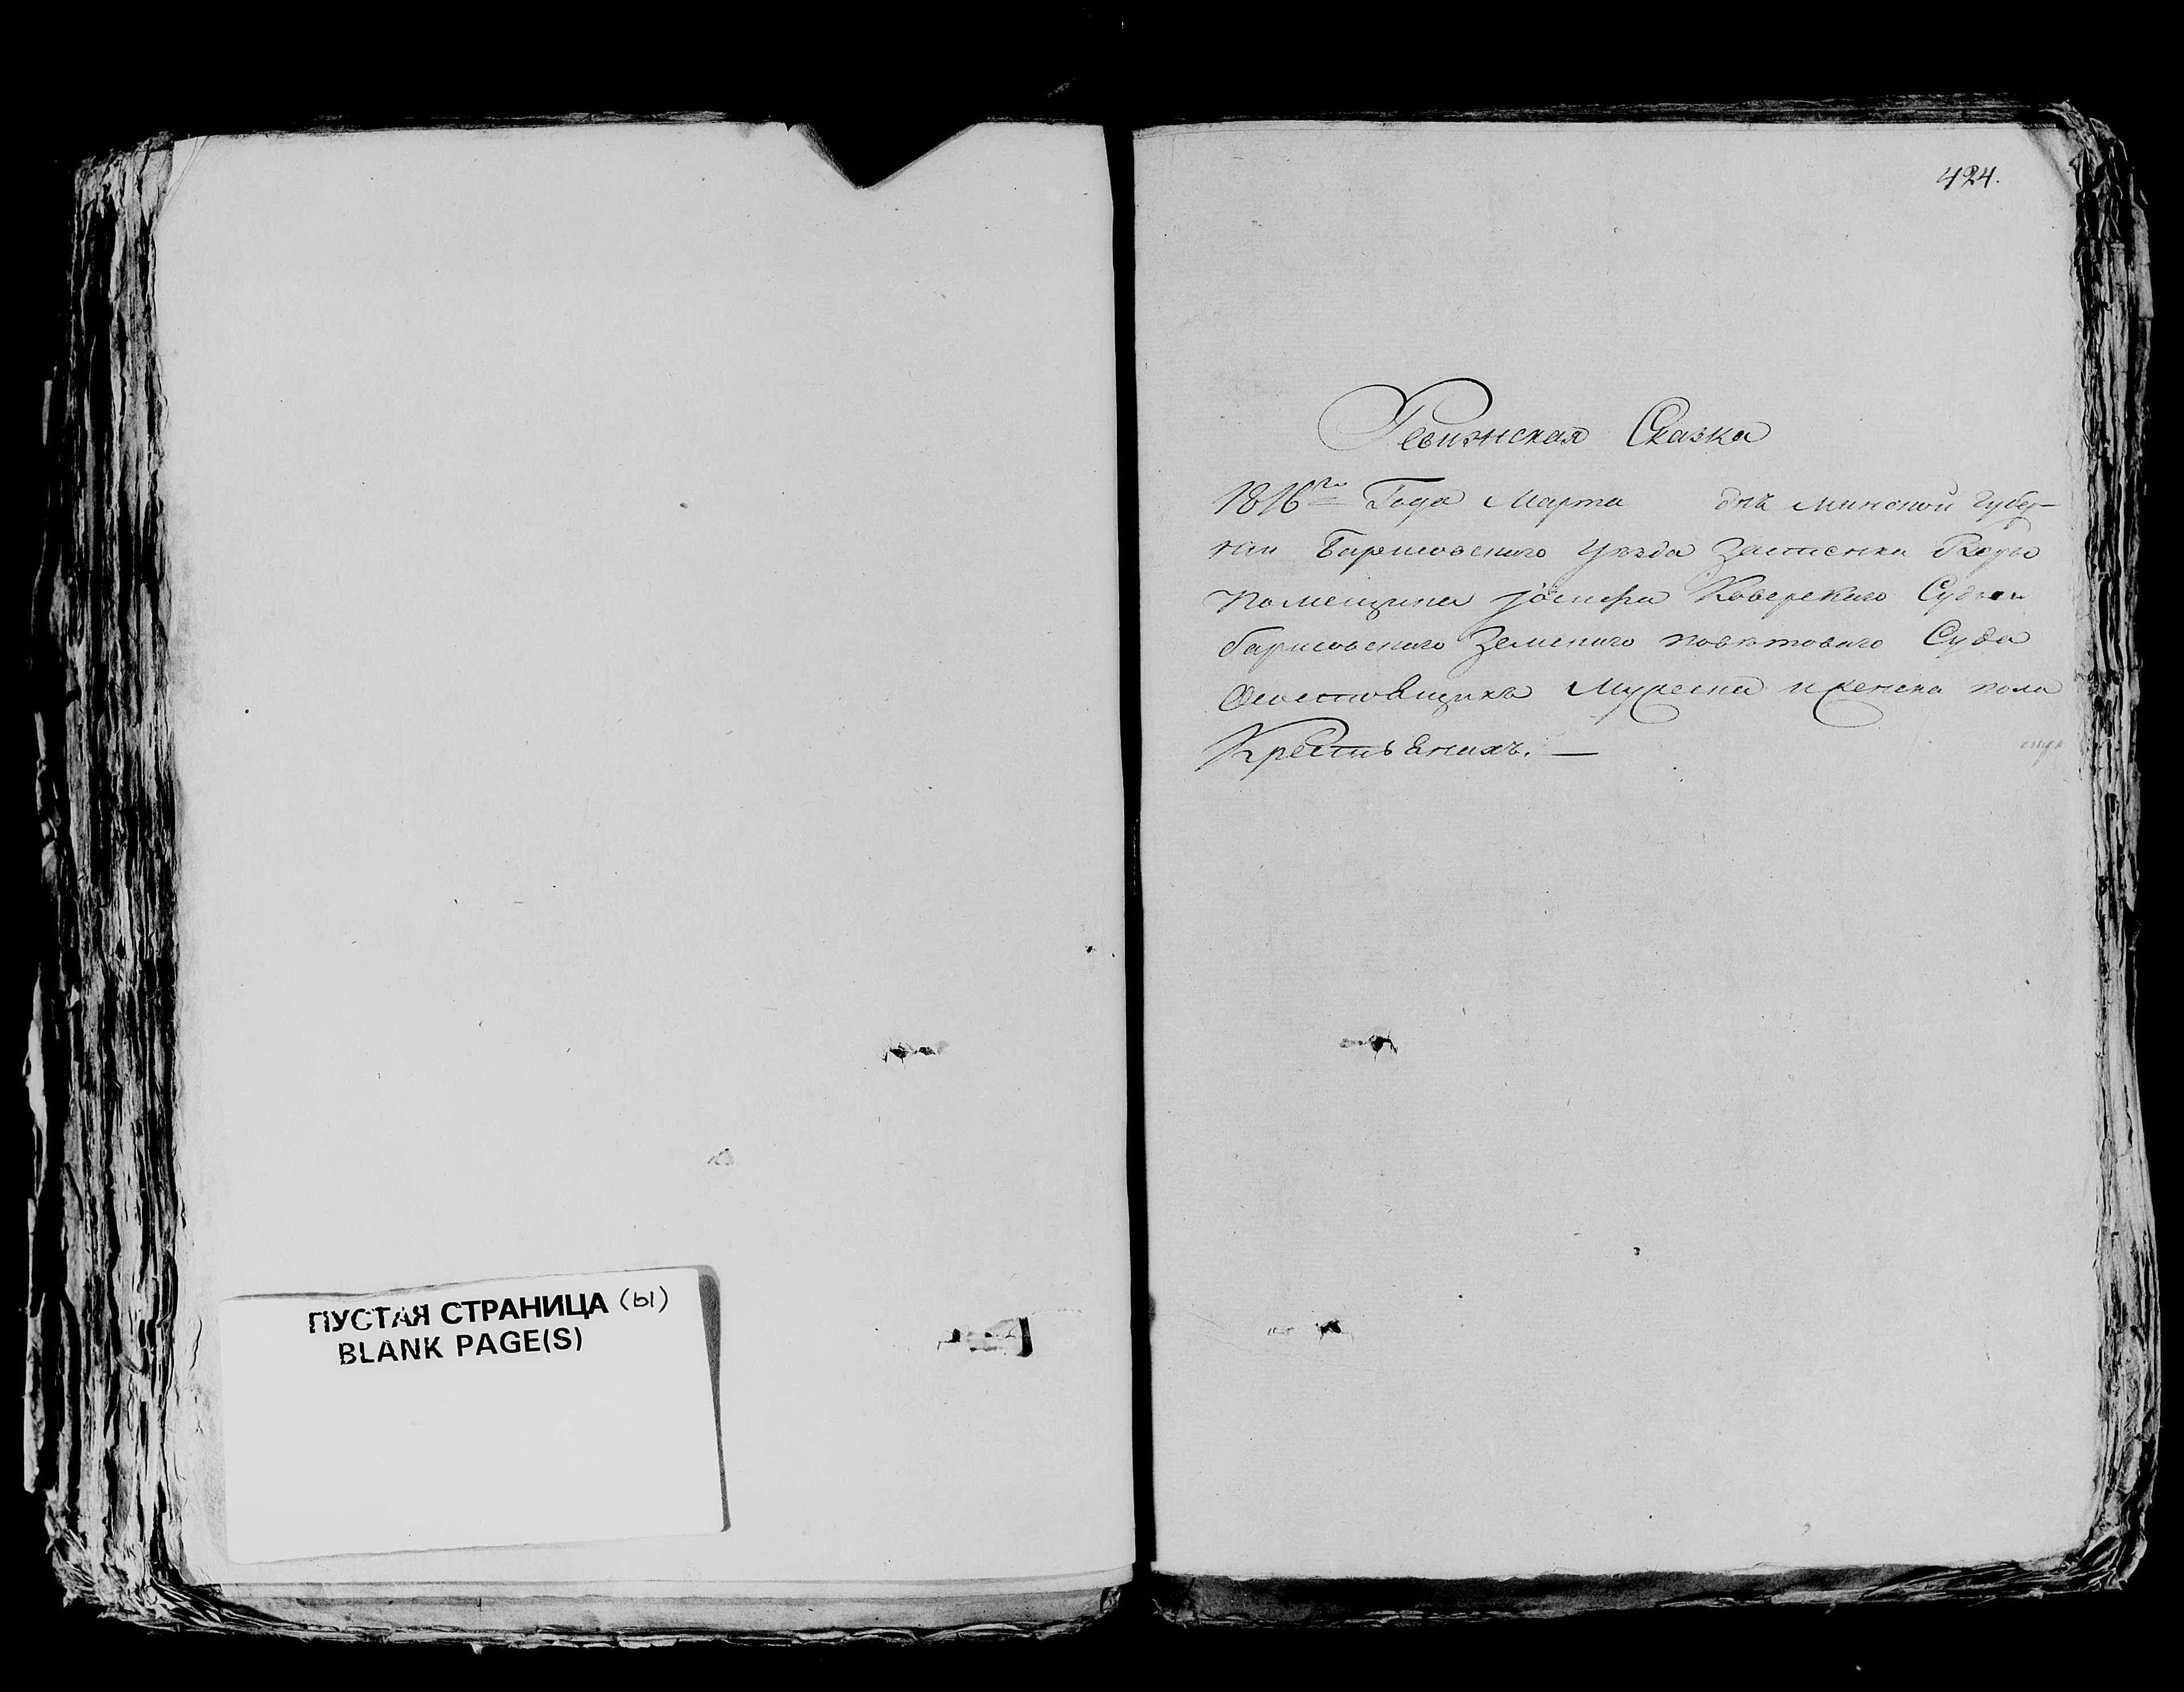 ПУСТАЯ СТРАНИЦА (ы)
BLANK PAGE(S)
424.
Ревижская Сказка
1816го Года Марта дня Минской Губер-
нии Барисовского Уезда Застенка
Помещика Іосифа Коверского Судьи
Барисовского Земского поветоваго Суда
Мужеска и женска пола
Крестьянахъ. —